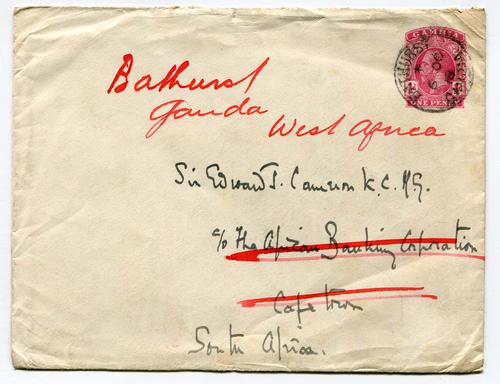 GAMBIA
BATHURST
ONE PENNY
Bathurst
Gamda
West Africa
Sir Edward J. Cameron K.C.M.G.
c/o The African Banking Corporation
Cape town
South Africa.